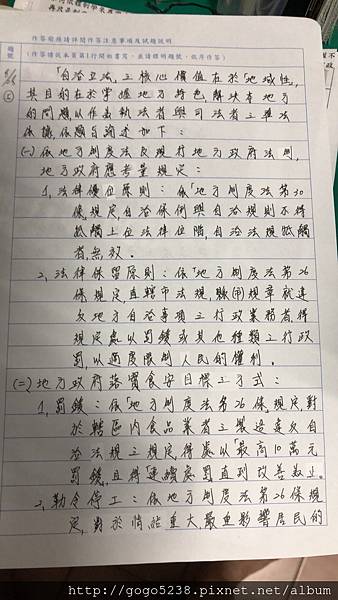 作答前應請詳閱作答注意事項及試題說明
題號
(作答請從本頁第1行開始書寫，並請標明題號，依序作答)
「自治立法」之核心價值在於「地域性」，
其目的在於掌握地方特色，解決本地方
的問題，以作為執法者與司法者之準法
依據，依題旨論述如下：
(一)依地方制度法及現行地方政府法制，
地方政府應考量規定：
1、法律優位原則：依「地方制度法第30
條」規定，自治條例與自治規則不得
牴觸上位法律位階，自治法規牴觸
者，無效。
2、法律保留原則：依「地方制度法第26
條」規定，直轄市法規、縣(市)規章就違
反地方自治事項之行政業務者，得
規定處以罰鍰或其他種類之行政
罰，以適度限制人民的權利。
(二)地方政府落實食安目標之方式：
1、罰鍰：依「地方制度法第26條」規定，對
於轄區內食品業者之製造違反自
治法規之規定，得處以「最高10萬元
罰鍰，且得「連續處罰直到改善為止。
2、勒令停工：依「地方制度法第26條規
定，對於情節重大，嚴重影響居民的
http://gogo5238.pixnet.net/album